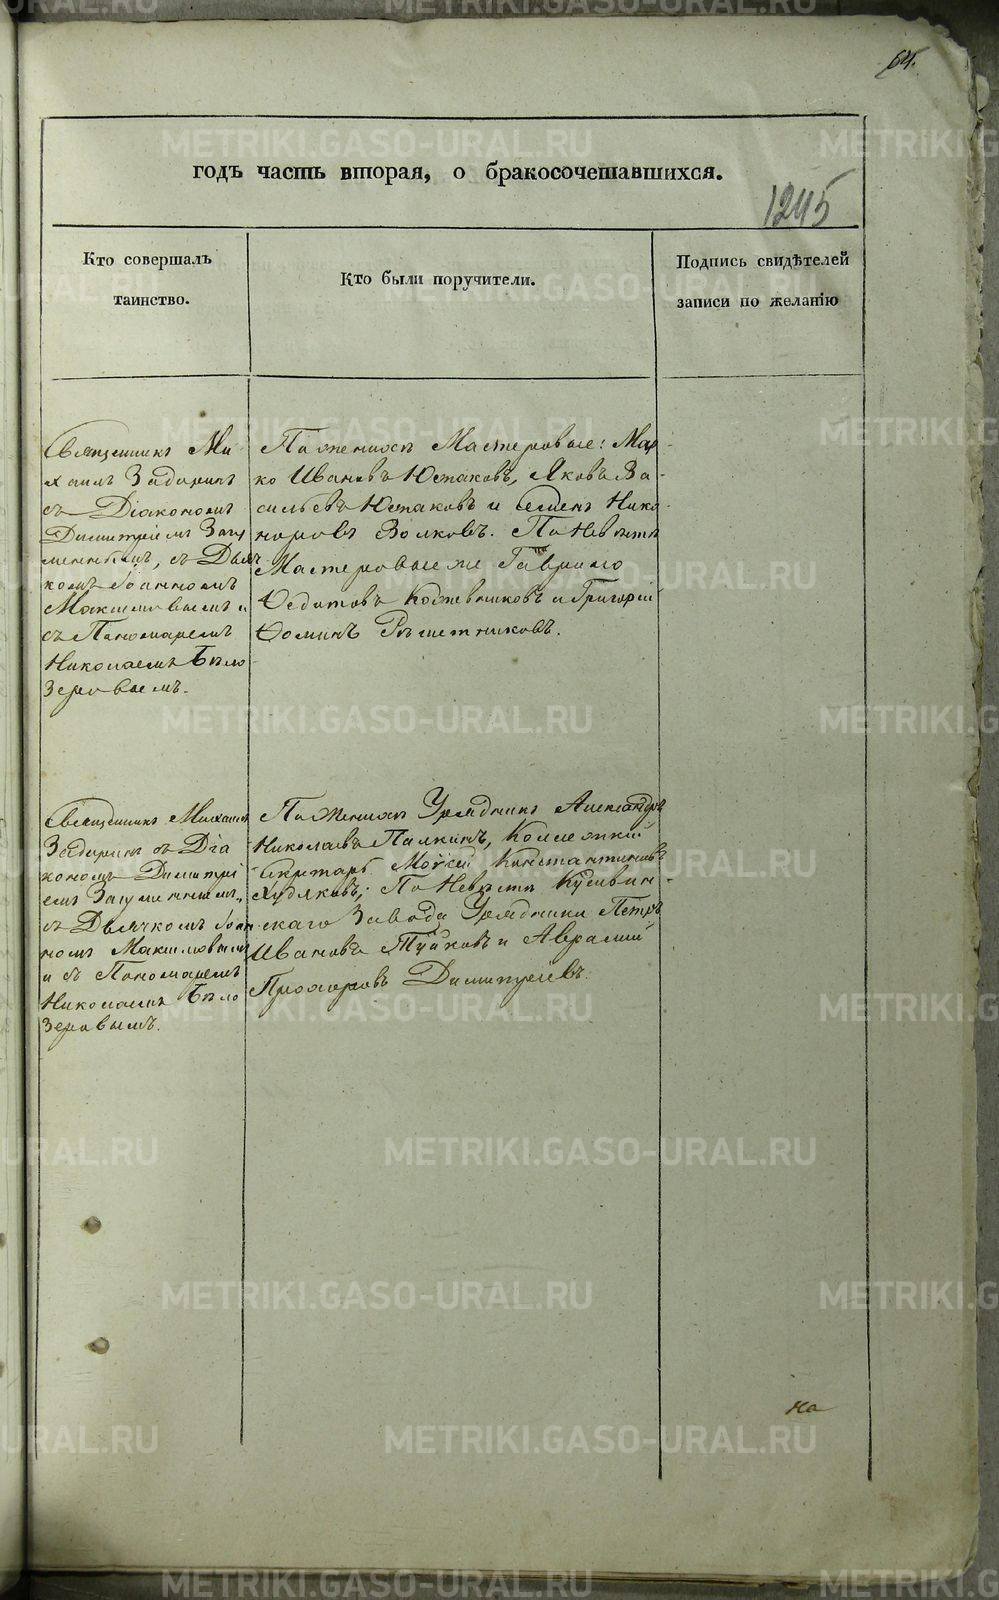 64.
годъ часть вторая, о бракосочетавшихся.
1245
Кто совершалъ
таинство.
Кто были поручители.
Подпись свидѣтелей
записи по желанію
Священникъ Ми-
хаилъ Задоринъ
съ Діакономъ
Димитріемъ Загу
меннымъ, съ Дьяч
комъ Іоанномъ
Максимовымъ и
съ Пономаремъ
Николаемъ Бѣло
зеровымъ.
По женихѣ Мастеровые: Мар-
ко Ивановъ Юстаковъ, Яковъ Ва-
сильевъ Юстаковъ и Семенъ Нико-
норовъ Волковъ. По Невѣстѣ
Мастеровые же Гаврило
Ѳедотовъ Кожевниковъ и Григорій
Ѳоминъ Рѣшетниковъ.
Священникъ Михаилъ
Задоринъ съ Діа
кономъ Димитрі
емъ Загуменнымъ,
съ Дьячкомъ Іоан
номъ Максимовымъ
и съ Пономаремъ
Николаемъ Бѣло
зеровымъ.
По Женихѣ Урядникъ Александръ
Николаевъ Палкинъ, Коллежскій
Секретарь Моѵсей Константиновъ
Худяковъ; По Невѣстѣ Кушвин-
скаго Завода Урядники Петръ
Ивановъ и Аврамій
Прохоровъ Димитріевъ.
на
METRIKI.GASO-URAL.RU